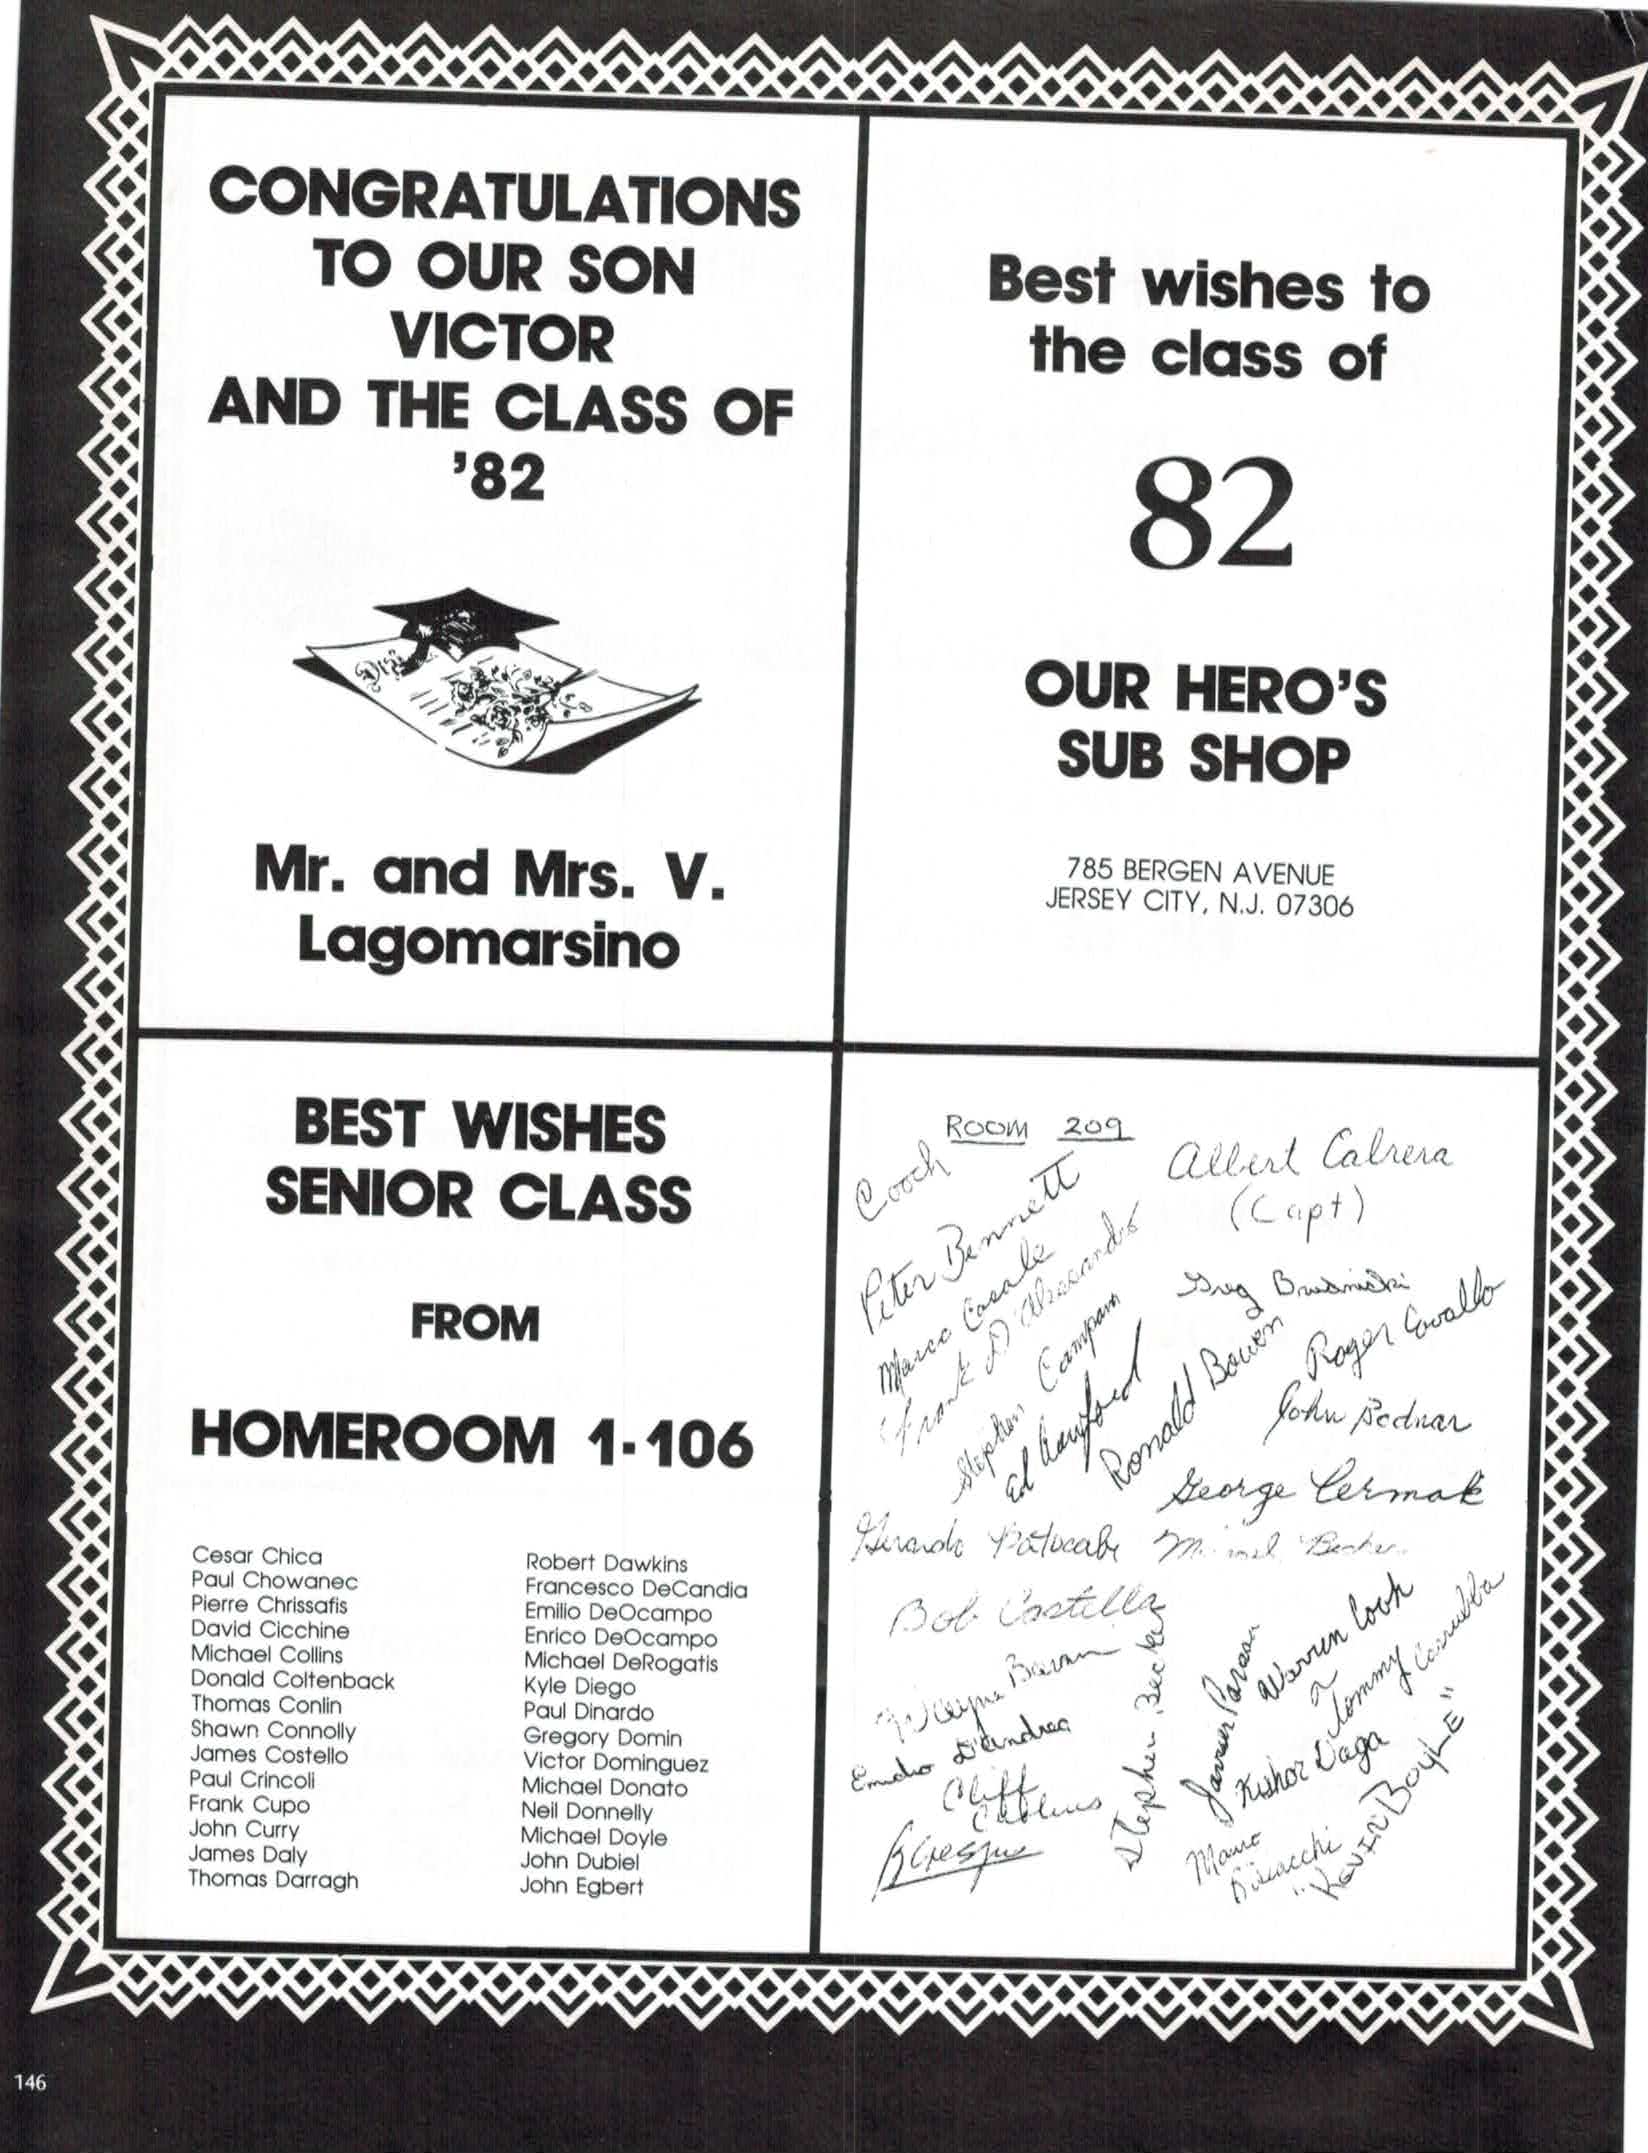 CONGRATULATIONS
TO OUR SON
VICTOR
AND THE CLASS OF
'82
Mr. and Mrs. V.
Lagomarsino
Best wishes to
the class of
82
OUR HERO'S
SUB SHOP
785 BERGEN AVENUE
JERSEY CITY, N.J. 07306
BEST WISHES
SENIOR CLASS
FROM
HOMEROOM 1-106
Cesar Chica
Paul Chowanec
Pierre Chrissafis
David Cicchine
Michael Collins
Donald Coltenback
Thomas Conlin
Shawn Connolly
James Costello
Paul Crincoli
Frank Cupo
John Curry
James Daly
Thomas Darragh
Robert Dawkins
Francesco DeCandia
Emilio DeOcampo
Enrico DeOcampo
Michael DeRogatis
Kyle Diego
Paul Dinardo
Gregory Domin
Victor Dominguez
Michael Donato
Neil Donnelly
Michael Doyle
John Dubiel
John Egbert
ROOM 209
Cooch
Albert Cabrera
(Capt)
Peter Bennett
Marco Casale
Frank D'Alessandro
Greg
Roger Cavallo
Stephen
Ed Crawford
Ronald Bowen
John Bednar
George Cermak
Gerardo
Bob Castillo
Wayne
Stephen Becker
Warren Cook
Tommy Carrubba
D'Andrea
Javier
Kishor Daga
Cliff
Mauro
"KEVIN BOYLE"
146